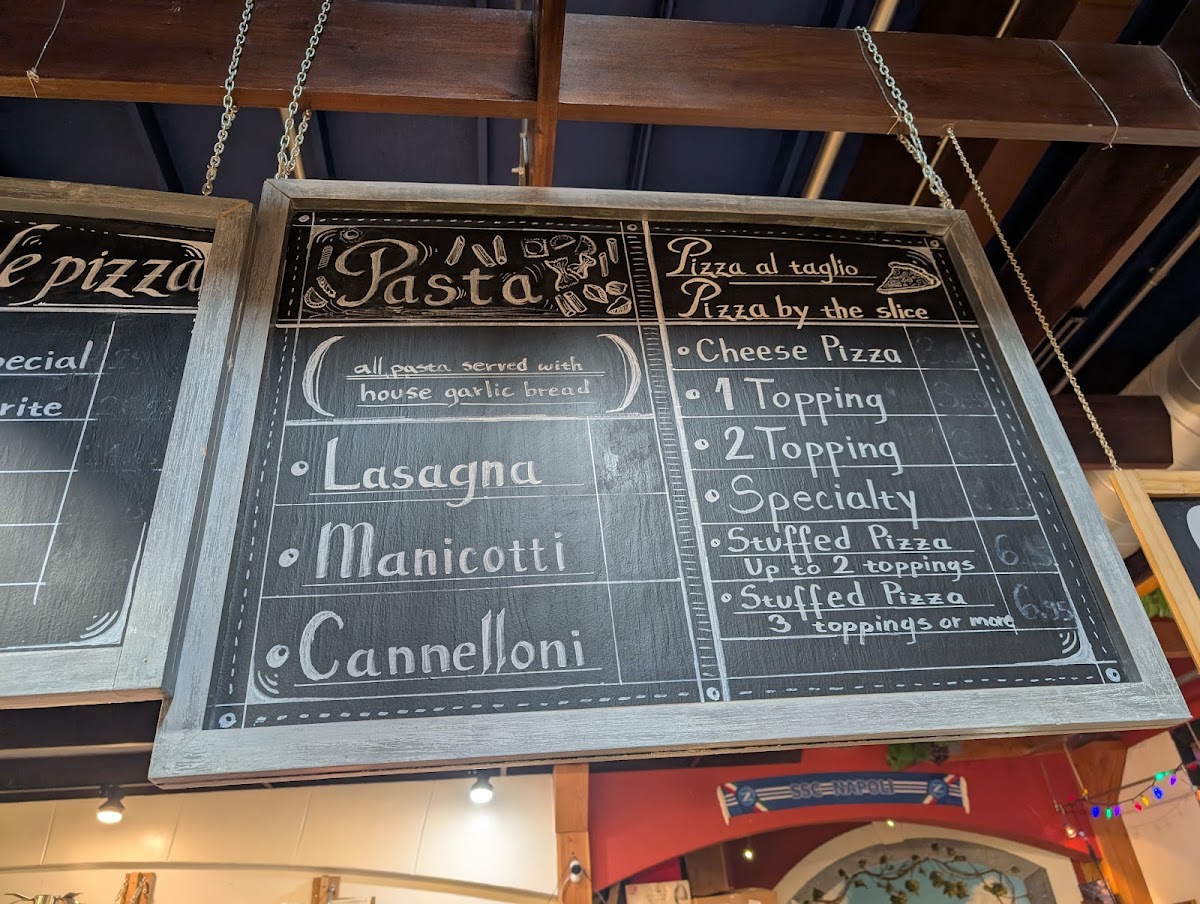 le pizza
ecial
rite
Pasta
(all pasta served with
house garlic bread)
• Lasagna
• Manicotti
• Cannelloni
Pizza al taglio
Pizza by the slice
• Cheese Pizza
• 1 Topping
• 2 Topping
• Specialty
• Stuffed Pizza
Up to 2 toppings
• Stuffed Pizza 6.95
3 toppings or more
SSC NAPOLI